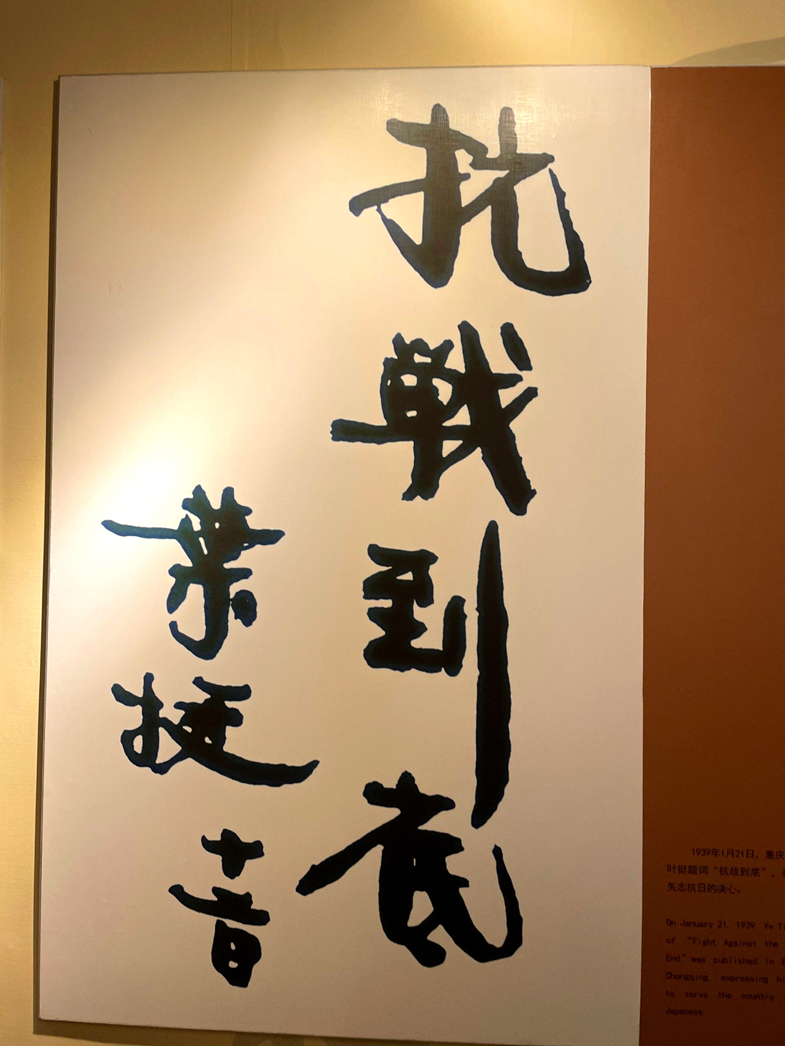 抗戦到底
葉挺
1939年1月21日，重庆
叶挺题词“抗战到底”，
矢志抗日的决心。
On January 21, 1939 Ye
of “Fight Against the
End” was published in
Chongqing, expressing
to serve the country
Japanese